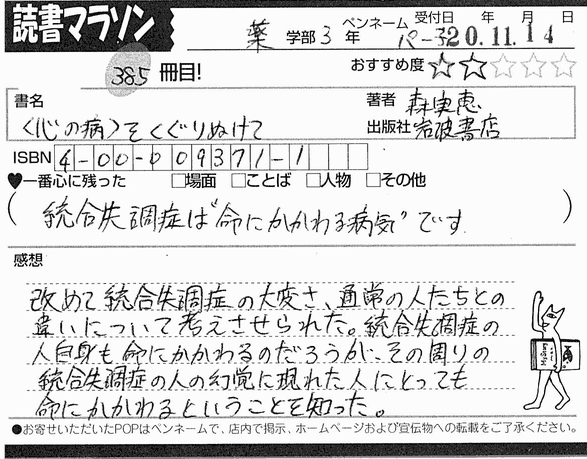 読書マラソン
薬 学部 3 年 ペンネーム 受付日 年 月 日
20.11.14
385 冊目! おすすめ度 ☆☆☆☆☆
書名 著者 森実恵
〈心の病〉をくぐりぬけて 出版社 岩波書店
ISBN 4-00-009371-1
♥一番心に残った □場面 □ことば □人物 □その他
(統合失調症は“命にかかわる病気”です)
感想
改めて統合失調症の大変さ、通常の人たちとの
違いについて考えさせられた。統合失調症の
人自身も命にかかわるのだろうが、その周りの
統合失調症の人の幻覚に現れた人にとっても
命にかかわるということを知った。
●お寄せいただいたPOPはペンネームで、店内で掲示、ホームページおよび宣伝物への転載をご了承ください。